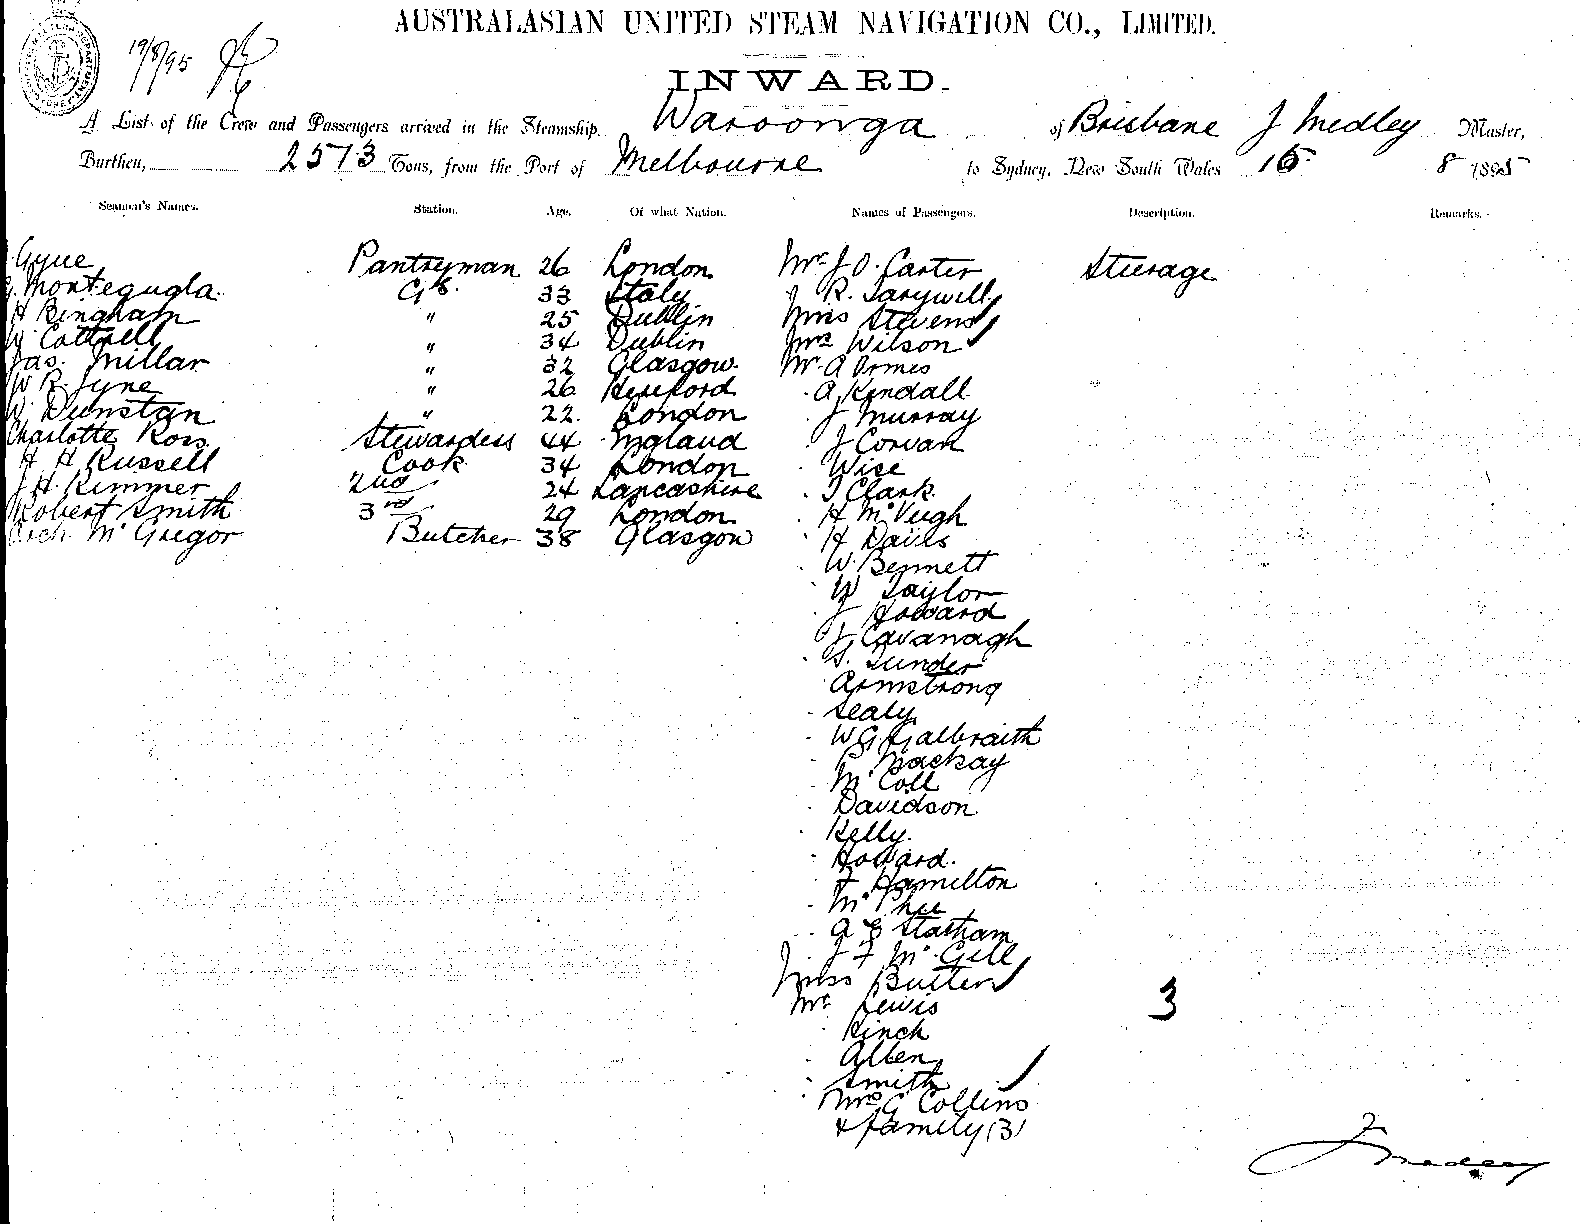 19/8/95
AUSTRALASIAN UNITED STEAM NAVIGATION CO., LIMITED.
INWARD.
A List of the Crew and Passengers arrived in the Steamship Waroonga of Brisbane J Medley Master,
Burthen, 2573 Tons, from the Port of Melbourne to Sydney, New South Wales 15 8 1895
Seaman's Names. Station. Age. Of what Nation. Names of Passengers. Description. Remarks.
Gyue Pantryman 26 London Mr J O. Carter Steerage
Montegugla. G.S. 33 Italy R.
H Bingham " 25 Dublin Miss Stevens
W Cottrell " 34 Dublin Mrs Wilson
Jas. Millar " 32 Glasgow. Mr A Ormes
W R. Tyne " 26 Hereford A. Kendall
W. Dunstan " 22. London J Murray
Charlotte Ross Stewardess 44 England J Corvan
H H Russell Cook 34 London Wise
J H. Rimmer 2nd 24 Lancashire J Clark.
Robert Smith 3rd 29 London H McVeigh
Arch McGregor Butcher 38 Glasgow H Davis
W. Bennett
W Taylor
J Howard
J Cavanagh
S. Sunder
Armstrong
Sealy
W G Galbraith
Mackay
McColl
Davidson
Kelly.
Howard.
F Hamilton
McPhee
A E Statham
J F McGill
Miss Butler
Mr Lewis 3
Kinch
Allen
Smith
Mrs G Collins
& family (3)
J Medley